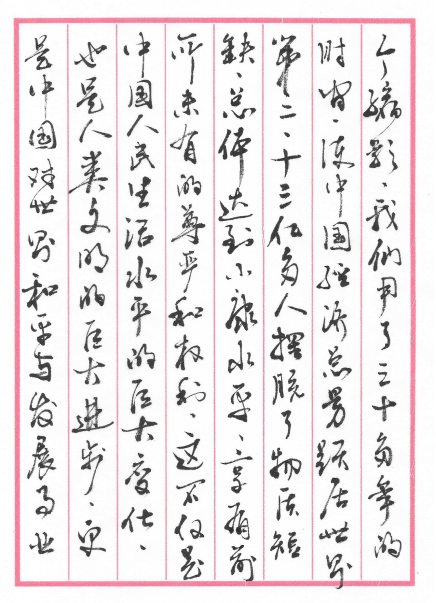 个缩影、我们用了三十多年的
时间、使中国经济总量跃居世界
第二、十三亿多人摆脱了物质短
缺、总体达到小康水平、享有前
所未有的尊严和权利、这不仅是
中国人民生活水平的巨大变化、
也是人类文明的巨大进步、更
是中国对世界和平与发展事业